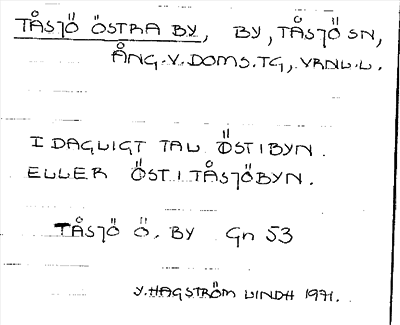 TÅSJÖ ÖSTRA BY, BY, TÅSJÖ SN,
ÅNG.V. DOMS.TG, VRNL.L.
I DAGLIGT TAL ÖST I BYN.
ELLER ÖST I TÅSJÖBYN.
TÅSJÖ Ö. BY Gn 53
Y. HAGSTRÖM LINDH 1971.